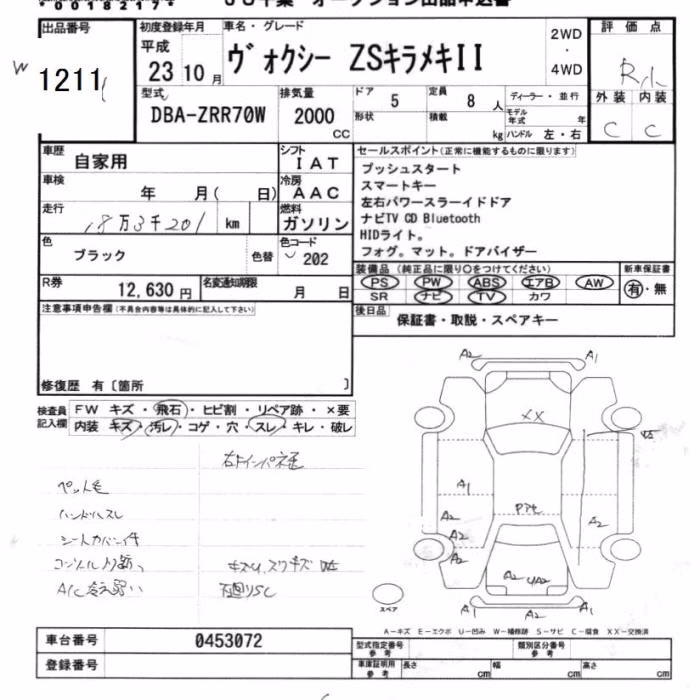 *00182172*
出品番号
1211
初度登録年月
平成 23 10 月
車名・グレード
ヴォクシー ZSキラメキII
2WD
・
4WD
評価点
R小
外装 内装
C C
型式
DBA-ZRR70W
排気量
2000
CC
ドア
5
形状
定員
8 人
積載
kg
ディーラー・並行
モデル年式 年
ハンドル 左・右
車歴
自家用
シフト
IAT
車検
年 月( 日)
冷房
AAC
走行
18万3千201 km
燃料
ガソリン
色
ブラック
色替
色コード
202
R券
12,630 円
名変通知期限
月 日
セールスポイント(正常に機能するものに限ります)
プッシュスタート
スマートキー
左右パワースラーイドドア
ナビTV CD Bluetooth
HIDライト。
フォグ。マット。ドアバイザー
装備品(純正品に限り○をつけてください)
PS PW ABS エアB AW
SR ナビ TV カワ
新車保証書
有・無
後日品
保証書・取説・スペアキー
注意事項申告欄(不具合内容等は具体的に記入して下さい)
修復歴 有〔箇所 〕
検査員
記入欄
FW キズ・飛石・ヒビ割・リペア跡・×要
内装 キズ・汚レ・コゲ・穴・スレ・キレ・破レ
ペット毛
ハンドルスレ
シートカバー付
A/C冷え弱い
下廻りSC
A2 A1
XX
A1
A2
A2
A2
A2
A2 UA2
A1 A2 A1
スペア
A-キズ E-エクボ U-凹み W-補修跡 S-サビ C-腐食 XX-交換済
車台番号
0453072
登録番号
型式指定番号
参考
類別区分番号
参考
車庫証明用
参考
長さ cm 幅 cm 高さ cm